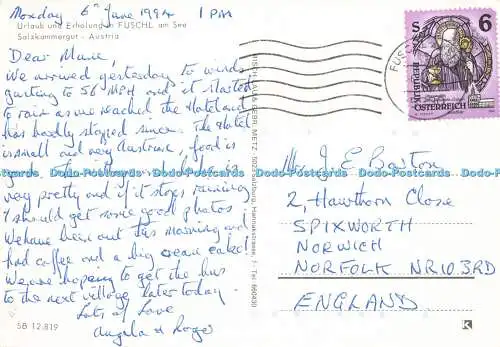 Monday 6th June 1994 1 PM
Urlaub und Erholung in FUSCHL am See
Salzkammergut - Austria
Dear Marie,
We arrived yesterday to winds
gusting to 56 MPH and it started
to rain as we reached the Hotel and
has hardly stopped since. The Hotel
is small and very Austrian, food is
very pretty and if it stops raining
I should get some good photos
We have been out this morning and
had coffee and a big cream cake!
We are hoping to get the bus
to the next village later today.
Lots of Love
Angela & Roger
SB 12.819
Mrs J. E Barton
2, Hawthorn Close
SPIXWORTH
NORWICH
NORFOLK NR10 3RD
ENGLAND
S 6
REPUBLIK
ÖSTERREICH
FUSCHL
K
Data-Postcards Data-Postcards Data-Postcards Data-Postcards